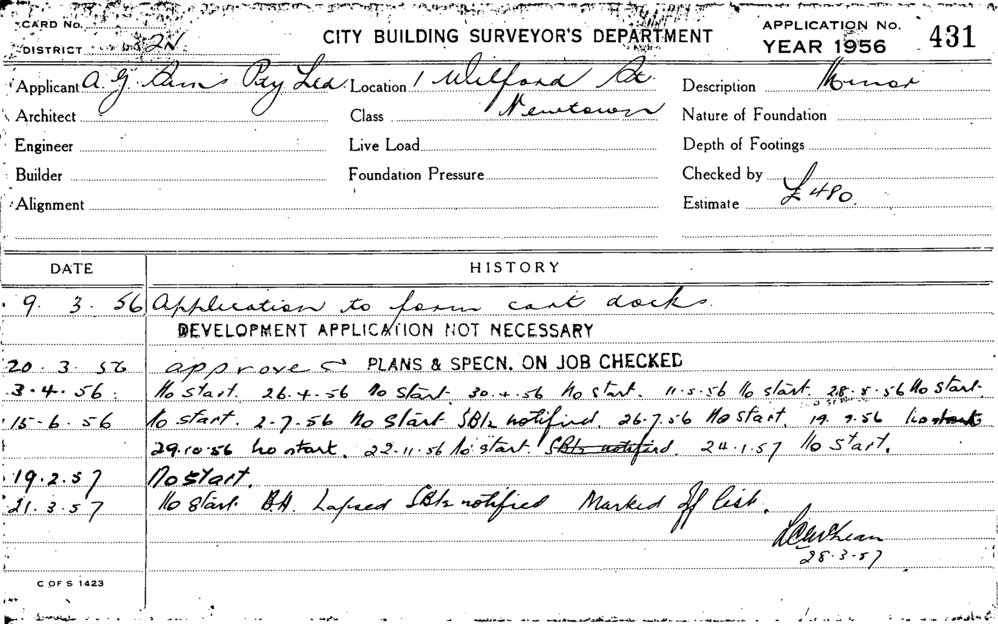 CARD No.
DISTRICT 2N
CITY BUILDING SURVEYOR'S DEPARTMENT
APPLICATION No. 431
YEAR 1956
Applicant A. G. Pty Ltd Location 1 Wilford St. Description Minor
Architect Class Newtown Nature of Foundation
Engineer Live Load Depth of Footings
Builder Foundation Pressure Checked by
Alignment Estimate £480.
DATE HISTORY
9. 3. 56 Application to form cart docks.
DEVELOPMENT APPLICATION NOT NECESSARY
20. 3. 56 approved PLANS & SPECN. ON JOB CHECKED
3.4.56. No start. 26.4.56 No start. 30.4.56 No start. 11.5.56 No start. 28.5.56 No start.
15-6.56 No start. 2-7.56 No start notified. 26.7.56 No start. 19.9.56 No start
29.10.56 No start. 22.11.56 No start. notified. 24.1.57 No start.
19.2.57 No start.
21.3.57 No start. Lapsed notified Marked off list.
28.3.57
C OF S 1423